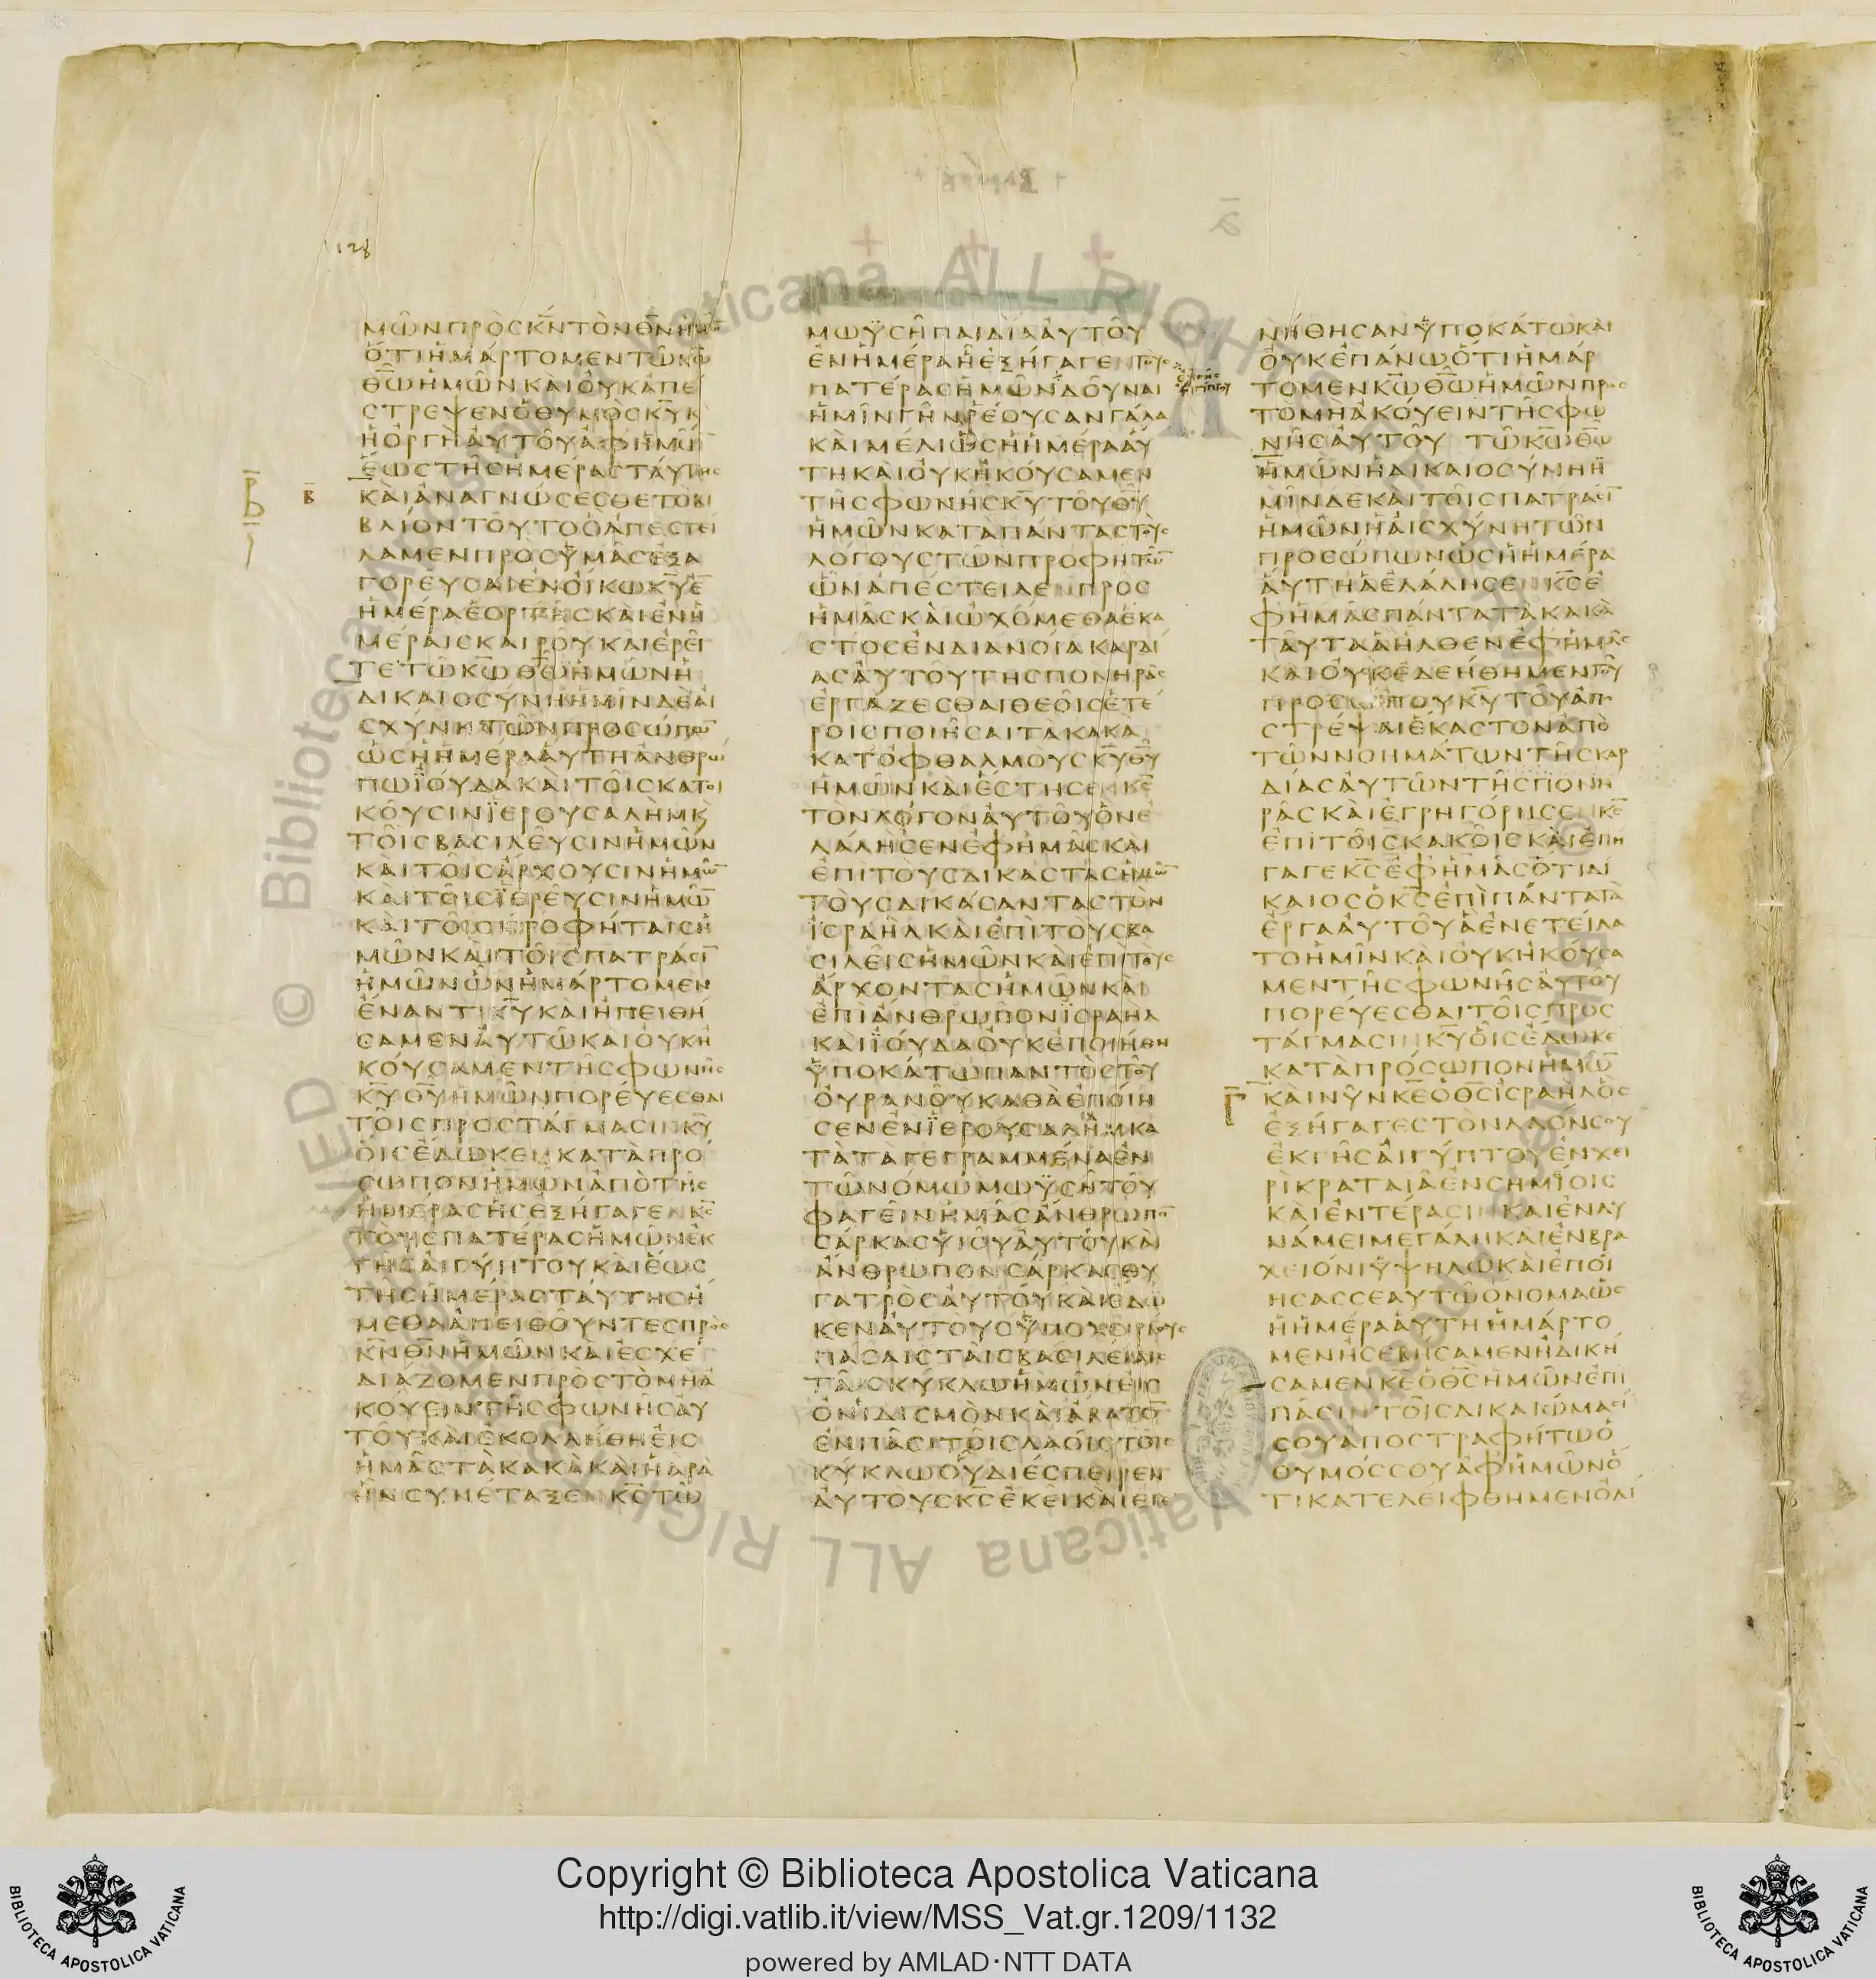 128
ΜῶΝΠΡῸϹΚ̅Ν̅ΤῸΝΘ̅Ν̅ἩΜῶ̅
ὍΤΙἩΜΆΡΤΟΜΕΝΤῶΚ̅ω̅
Θ̅ω̅ἩΜῶΝΚΑῚΟΥ̓ΚἈΠΕ
ϹΤΡΕΨΕΝὉΘΥΜῸϹΚ̅Υ̅Κ
ἩὈΡΓῊΑΥ̓ΤΟῦἈΦἩΜῶ̅
ἝωϹΤῆϹἩΜΈΡΑϹΤΑΎΤΗϹ
ΚΑῚἈΝΑΓΝώϹΕϹΘΕΤΟΒΙ
ΒΛΊΟΝΤΟῦΤΟὉἈΠΕϹΤΕΙ
ΛΑΜΕΝΠΡΟϹὙΜᾶϹἘΞΑ
ΓΟΡΕῦϹΑΙἘΝΟἼΚωΚ̅Υ̅Ἐ̅
ἩΜΈΡΑἙΟΡΤῆϹΚΑῚἘΝἩ
ΜΈΡΑΙϹΚΑΙΡΟῦΚΑΙἘΡΕῖ
ΤΕΤῶΚ̅ω̅Θ̅ω̅ἩΜῶΝἩ
ΔΙΚΑΙΟϹΎΝΗἩΜῖΝΔῈΑἸ
ϹΧΎΝΗΤῶΝΠΡΟϹώΠω̅
ὡϹἩἩΜΈΡΑΑΎΤΗἈΝΘΡω
ΠωἸΟΎΔΑΚΑῚΤΟῖϹΚΑΤΟΙ
ΚΟΎϹΙΝἸΕΡΟΥϹΑΛῊΜΚ̀
ΤΟῖϹΒΑϹΙΛΕῦϹΙΝἩΜῶΝ
ΚΑῚΤΟῖϹἌΡΧΟΥϹΙΝἩΜῶ̅
ΚΑῚΤΟῖϹἹΕΡΕῦϹΙΝἩΜῶ̅
ΚΑῚΤΟῖϹΠΡΟΦΉΤΑΙϹἩ
ΜῶΝΚΑῚΤΟῖϹΠΑΤΡΆϹΙ̅
ἩΜῶΝὧΝἩΜΆΡΤΟΜΕΝ
ἜΝΑΝΤΙΚ̅Υ̅ΚΑῚἨΠΕΙΘΉ
ϹΑΜΕΝΑΥ̓ΤῶΚΑῚΟΥ̓ΚΗ
ΚΟΎϹΑΜΕΝΤῆϹΦωΝῆϹ
Κ̅Υ̅Θ̅Υ̅ἩΜῶΝΠΟΡΕΎΕϹΘΑΙ
ΤΟῖϹΠΡΟϹΤΆΓΜΑϹΙΝΚ̅Υ̅
ΟἿϹἜΔωΚΕΝΚΑΤᾺΠΡΌ
ϹωΠΟΝἩΜῶΝἈΠῸΤῆϹ
ἩΜΈΡΑϹἯϹἘΞΉΓΑΓΕΝΚ̅Ϲ̅
ΤΟῪϹΠΑΤΈΡΑϹἩΜῶΝἘΚ
ΓῆϹΑἸΓΎΠΤΟΥΚΑῚἝωϹ
ΤῆϹἩΜΈΡΑϹΤΑΎΤΗϹἨ
ΜΕΘΑἈΠΕΙΘΟῦΝΤΕϹΠΡῸϹ
Κ̅Ν̅Θ̅Ν̅ἩΜῶΝΚΑῚἘϹΧΕ
ΔΙΆΖΟΜΕΝΠΡῸϹΤῸΜΗἈ
ΚΟΎΕΙΝΤῆϹΦωΝῆϹΑΥ̓
ΤΟῦΚΑῚἘΚΟΛΛΉΘΗΕἸϹ
ἩΜᾶϹΤᾺΚΑΚᾺΚΑῚἩἈΡᾺ
ἫΝϹΥΝΈΤΑΞΕΝΚ̅Ϲ̅Τῶ
ΜωΫϹῆΠΑΙΔῚΑΥ̓ΤΟῦ
ἘΝἩΜΈΡΑἯἘΞΉΓΑΓΕΝΤΟῪϹ
ΠΑΤΈΡΑϹἩΜῶΝΔΟῦΝΑΙ
ἩΜῖΝΓῆΝΡΈΟΥϹΑΝΓΆΛΑ
ΚΑῚΜΈΛΙὡϹἩἩΜΈΡΑΑΎ
ΤΗΚΑῚΟΥ̓ΚΗΚΟΎϹΑΜΕΝ
ΤῆϹΦωΝῆϹΚ̅Υ̅ΤΟῦΘ̅Υ̅
ἩΜῶΝΚΑΤᾺΠΆΝΤΑϹΤΟῪϹ
ΛΌΓΟΥϹΤῶΝΠΡΟΦΗΤῶ̅
ὧΝἈΠΈϹΤΕΙΛΕΝΠΡΟϹ
ἩΜᾶϹΚΑῚὨΧΌΜΕΘΑἝΚΑ
ϹΤΟϹἘΝΔΙΑΝΟΊΑΚΑΡΔΙ
ΑϹΑΥ̓ΤΟῦΤΗϹΠΟΝΗΡᾶϹ
ἘΡΓΆΖΕϹΘΑΙΘΕΟῖϹἙΤΈ
ΡΟΙϹΠΟΙῆϹΑΙΤᾺΚΑΚᾺ
ΚΑΤὈΦΘΑΛΜΟῪϹΚ̅Υ̅Θ̅Υ̅
ἩΜῶΝΚΑῚἜϹΤΗϹΕΝΚ̅Ϲ̅
ΤῸΝΛΌΓΟΝΑΥ̓ΤΟῦὋΝἘ
ΛΆΛΗϹΕΝἘΦἩΜᾶϹΚΑῚ
ἘΠῚΤΟῪϹΔΙΚΑϹΤᾺϹἩΜῶ̅
ΤΟῪϹΔΙΚΆϹΑΝΤΑϹΤῸΝ
ἸϹΡΑῊΛΚΑῚἘΠῚΤΟΥϹΒΑ
ϹΙΛΕῖϹἩΜῶΝΚΑῚἘΠῚΤΟῪϹ
ἌΡΧΟΝΤΑϹἩΜῶΝΚΑῚ
ἘΠῚἌΝΘΡωΠΟΝἸϹΡΑῊΛ
ΚΑῚἸΟΎΔΑΟΥ̓ΚἘΠΟΙΉΘΗ
ὙΠΟΚΆΤωΠΑΝΤῸϹΤΟῦ
ΟΥ̓ΡΑΝΟῦΚΑΘᾺἘΠΟΊΗ
ϹΕΝἘΝἸΕΡΟΥϹΑΛῊΜΚΑ
ΤᾺΤᾺΓΕΓΡΑΜΜΈΝΑἘΝ
ΤῶΝΌΜωΜωΫϹῆΤΟῦ
ΦΑΓΕῖΝἩΜᾶϹἌΝΘΡωΠΟ̅
ϹΆΡΚΑϹΥἹΟῦΑΥ̓ΤΟῦΚΑῚ
ἌΝΘΡωΠΟΝϹΆΡΚΑϹΘΥ
ΓΑΤΡῸϹΑΥ̓ΤΟῦΚΑῚἜΔω
ΚΕΝΑΥ̓ΤΟῪϹὙΠΟΧΕΙΡΊΟΥϹ
ΠΆϹΑΙϹΤΑῖϹΒΑϹΙΛΕΊΑΙϹ
ΤΑῖϹΚΎΚΛωἩΜῶΝΕἸϹ
ὈΝΙΔΙϹΜῸΝΚΑῚἌΒΑΤΟ̅
ἘΝΠᾶϹΙΤΟῖϹΛΑΟῖϹΤΟῖϹ
ΚΎΚΛωΟὟΔΙΈϹΠΕΙΡΕΝ
ΑΥ̓ΤΟῪϹΚ̅Ϲ̅ἘΚΕῖΚΑῚἘΓΕ
ΝΉΘΗϹΑΝὙΠΟΚΆΤωΚΑῚ
ΟΥ̓ΚἘΠΆΝωὍΤΙἩΜΆΡ
ΤΟΜΕΝΚ̅ω̅Θ̅ω̅ἩΜῶΝΠΡῸϹ
ΤΟΜΗἈΚΟΎΕΙΝΤῆϹΦω
ΝῆϹΑΥ̓ΤΟῦ ΤῶΚ̅ω̅Θ̅ω̅
ἩΜῶΝἩΔΙΚΑΙΟϹΎΝΗἩ
ΜῖΝΔΕΚΑῚΤΟῖϹΠΑΤΡΆϹΙ̅
ἩΜῶΝἩΑἸϹΧΎΝΗΤῶΝ
ΠΡΟϹώΠωΝὡϹἩἩΜΈΡΑ
ΑΎΤΗἋἘΛΆΛΗϹΕΝΚ̅Ϲ̅Ἐ
ΦἩΜᾶϹΠΆΝΤΑΤᾺΚΑΚᾺ
ΤΑῦΤΑἋἮΛΘΕΝἘΦἩΜᾶϹ
ΚΑῚΟΥ̓ΚἘΔΕΉΘΗΜΕΝΤΟῦ
ΠΡΟϹώΠΟΥΚ̅Υ̅ΤΟῦἈΠΟ
ϹΤΡΈΨΑΙἝΚΑϹΤΟΝἈΠῸ
ΤῶΝΝΟΗΜΆΤωΝΤῆϹΚΑΡ
ΔΊΑϹΑΥ̓ΤῶΝΤῆϹΠΟΝΗ
ΡᾶϹΚΑῚἘΓΡΗΓΌΡΗϹΕΝΚ̅Ϲ̅
ἘΠῚΤΟῖϹΚΑΚΟῖϹΚΑῚἘΠΗ
ΓΑΓΕΚ̅Ϲ̅ἘΦἩΜᾶϹὍΤΙΔΙ
ΚΑΙΟϹὉΚ̅Ϲ̅ἘΠῚΠΆΝΤΑΤᾺ
ἜΡΓΑΑΥ̓ΤΟῦἋἘΝΕΤΕΊΛΑ
ΤΟἩΜῖΝΚΑῚΟΥ̓ΚΗΚΟΎϹΑ
ΜΕΝΤῆϹΦωΝῆϹΑΥ̓ΤΟῦ
ΠΟΡΕΎΕϹΘΑΙΤΟῖϹΠΡΟϹ
ΤΆΓΜΑϹΙΝΚ̅Υ̅ΟἿϹἜΔωΚΕ
ΚΑΤᾺΠΡΌϹωΠΟΝἩΜῶ̅
ΚΑῚΝῦΝΚ̅Ε̅ὉΘ̅Ϲ̅ἸϹΡΑῊΛὋϹ
ἘΞΉΓΑΓΕϹΤῸΝΛΑΌΝϹΟΥ
ἘΚΓῆϹΑἸΓΎΠΤΟΥἘΝΧΕΙ
ΡῚΚΡΑΤΑΙᾶἘΝϹΗΜΊΟΙϹ
ΚΑῚἘΝΤΈΡΑϹΙΝΚΑῚἘΝΔΥ
ΝΆΜΕΙΜΕΓΆΛΗΚΑῚἘΝΒΡΑ
ΧΕΙΌΝΙὙΨΗΛῶΚΑῚἘΠΟΊ
ΗϹΑϹϹΕΑΥΤῶὌΝΟΜΑὡϹ
ἩἩΜΈΡΑΑΎΤΗἩΜΆΡΤΟ
ΜΕΝἨϹΕΒΉϹΑΜΕΝἨΔΙΚΉ
ϹΑΜΕΝΚ̅Ε̅ὉΘ̅Ϲ̅ἩΜῶΝἘΠῚ
ΠᾶϹΙΝΤΟῖϹΔΙΚΑΙώΜΑϹΙ
ϹΟΥΑΠΟϹΤΡΑΦΉΤωὉ
ΘΥΜΌϹϹΟΥἈΦἩΜῶΝὍ
ΤΙΚΑΤΕΛΕΊΦΘΗΜΕΝὈΛΊ
Β̅
Γ̅
Copyright © Biblioteca Apostolica Vaticana
http://digi.vatlib.it/view/MSS_Vat.gr.1209/1132
powered by AMLAD·NTT DATA
BIBLIOTECA APOSTOLICA VATICANA
BIBLIOTECA APOSTOLICA VATICANA